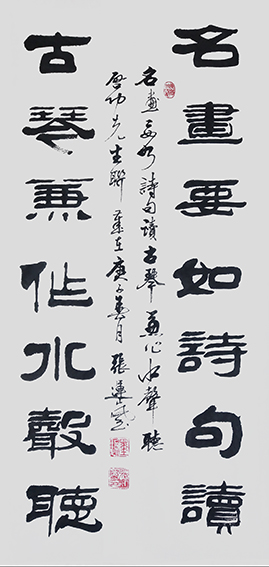 名畫要如詩句讀
古琴兼作水聲聽
名畫要如詩句讀古琴兼作水聲聽
啓功先生聯 歲在庚子夏月 張蓮